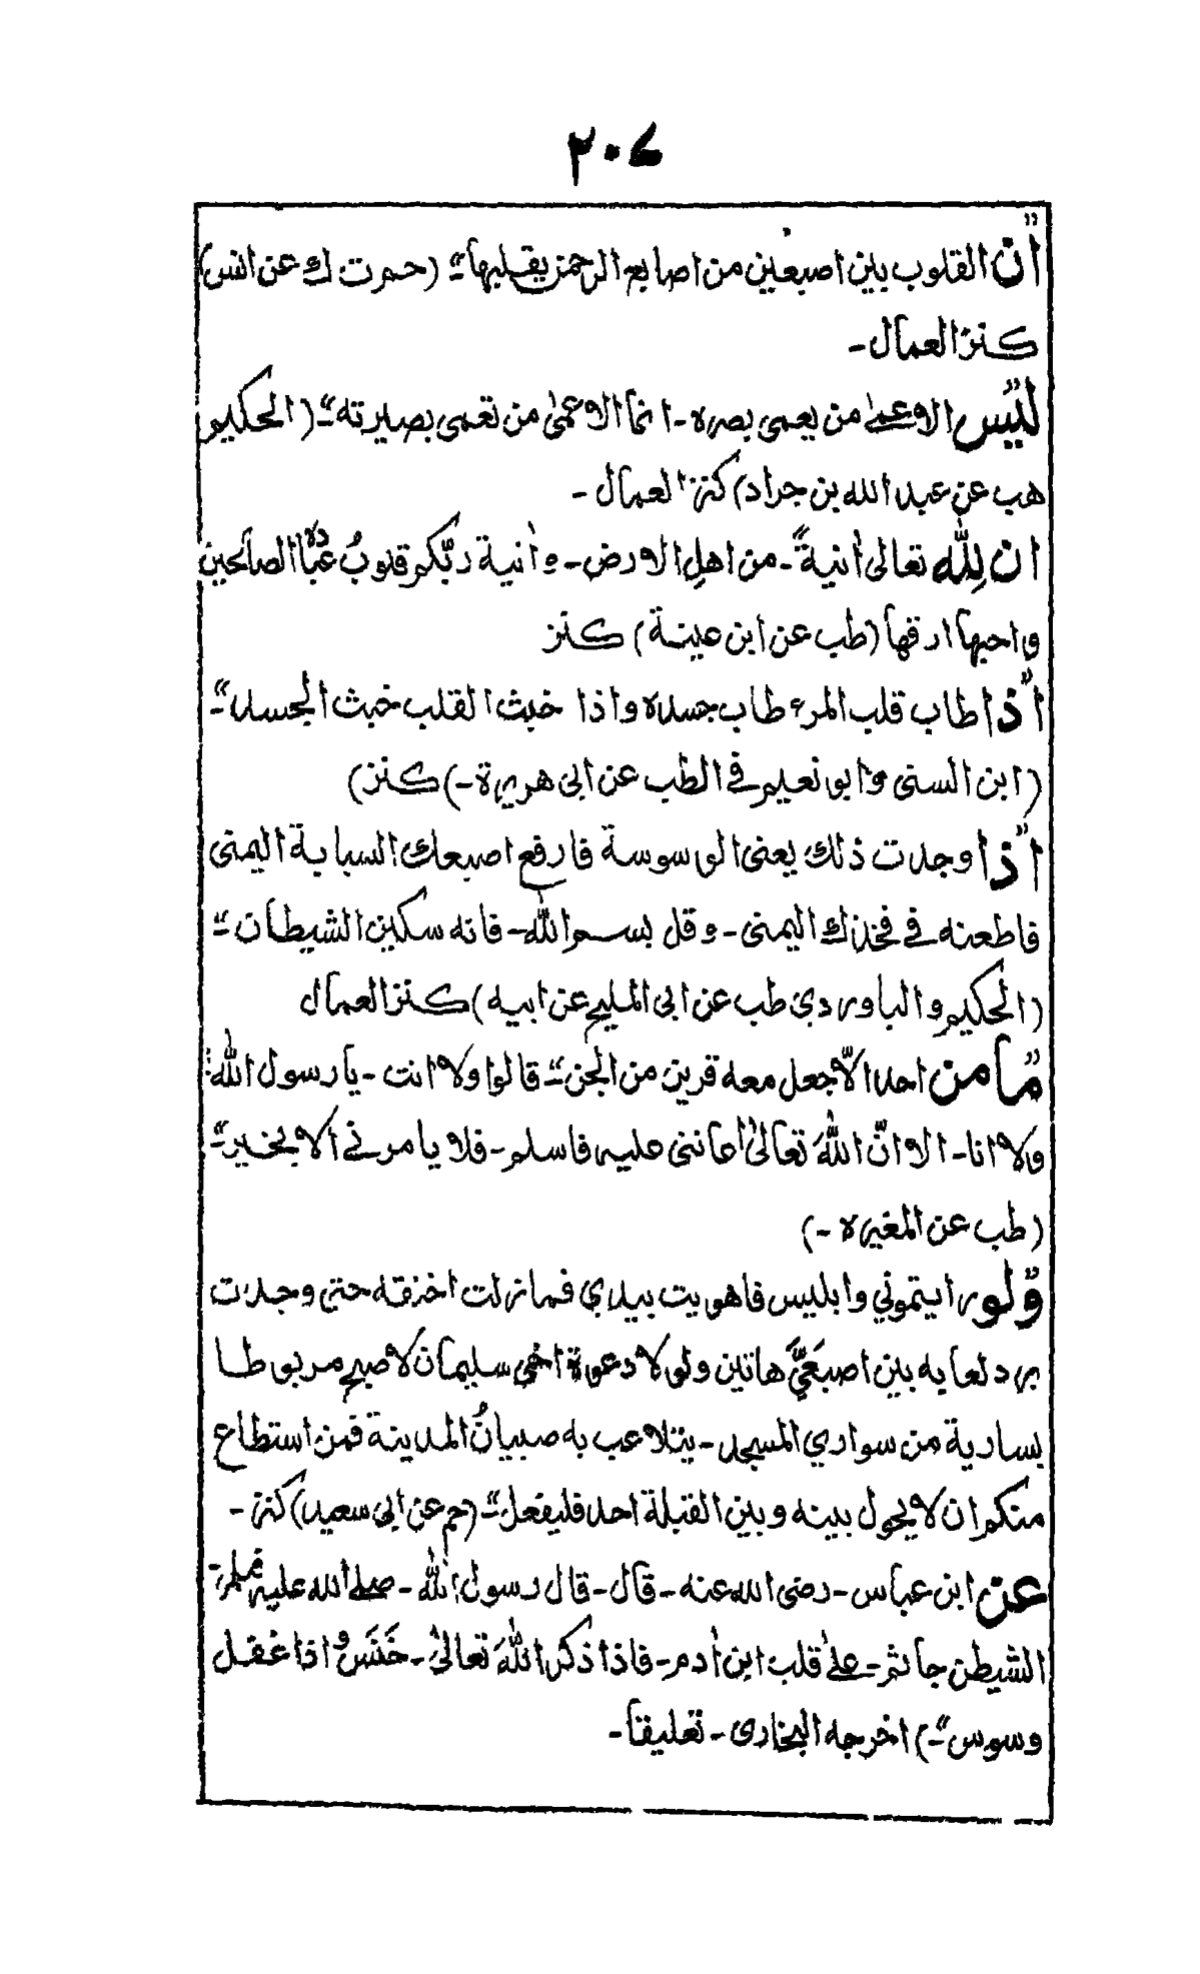 ۲۰۷
"ان القلوب بین اصبعین من اصابع الرحمن یقلبها"۔ (حم ت ك عن انس)
کنز العمال۔
"لیس الاعمیٰ من یعمی بصره۔ انما الاعمیٰ من تعمی بصیرته"۔ (الحکیم
هب عن عبد الله بن جراد) کنز العمال۔
ان لِلّٰهِ تعالیٰ اٰنیةً۔ من اهلِ الارض۔ واٰنیة ربّکم قلوبُ عبادهٖ الصالحین
واحبها ارقها (طب عن ابن عینة) کنز
"اذا طاب قلب المرء طاب جسده واذا خبث القلب خبث الجسد"۔
(ابن السنی وابو نعیم فی الطب عن ابی هریرة۔) کنز)
"اذا وجدت ذلك یعنی الوسوسة فارفع اصبعك السبابة الیمنی
فاطعنه فی فخذك الیمنی۔ وقل بسم الله۔ فانه سکین الشیطان"۔
(الحکیم والباوردی طب عن ابی الملیح عن ابیه) کنز العمال
"ما من احد الّا جعل معه قرین من الجن"۔ قالوا ولا انت۔ یا رسول الله؛
ولا انا۔ الا انّ اللهَ تعالیٰ اعاننی علیه فاسلم۔ فلا یامرنی الا بخیر"۔
(طب عن المغیره۔)
"ولو رایتمونی وابلیس فاهویت بیدی فما زلت اخنقه حتی وجدت
برد لعابه بین اصبعَیَّ هاتین ولولا دعوة اخی سلیمان لاصبح مربوطا
بساریة من سواری المسجد۔ یتلاعب به صبیانُ المدینة فمن استطاع
منکم ان لا یحول بینه وبین القبلة احد فلیفعل"۔ (حم عن ابی سعید) کنز۔
عن ابن عباس۔ رضی الله عنه۔ قال۔ قال رسول الله۔ صلے الله علیه وسلم۔
الشیطن جاثم۔ علیٰ قلب ابن اٰدم۔ فاذا ذکر اللهَ تعالیٰ۔ خَنَسَ و اذا غفل
وسوس"۔) اخرجه البخاری۔ تعلیقا۔